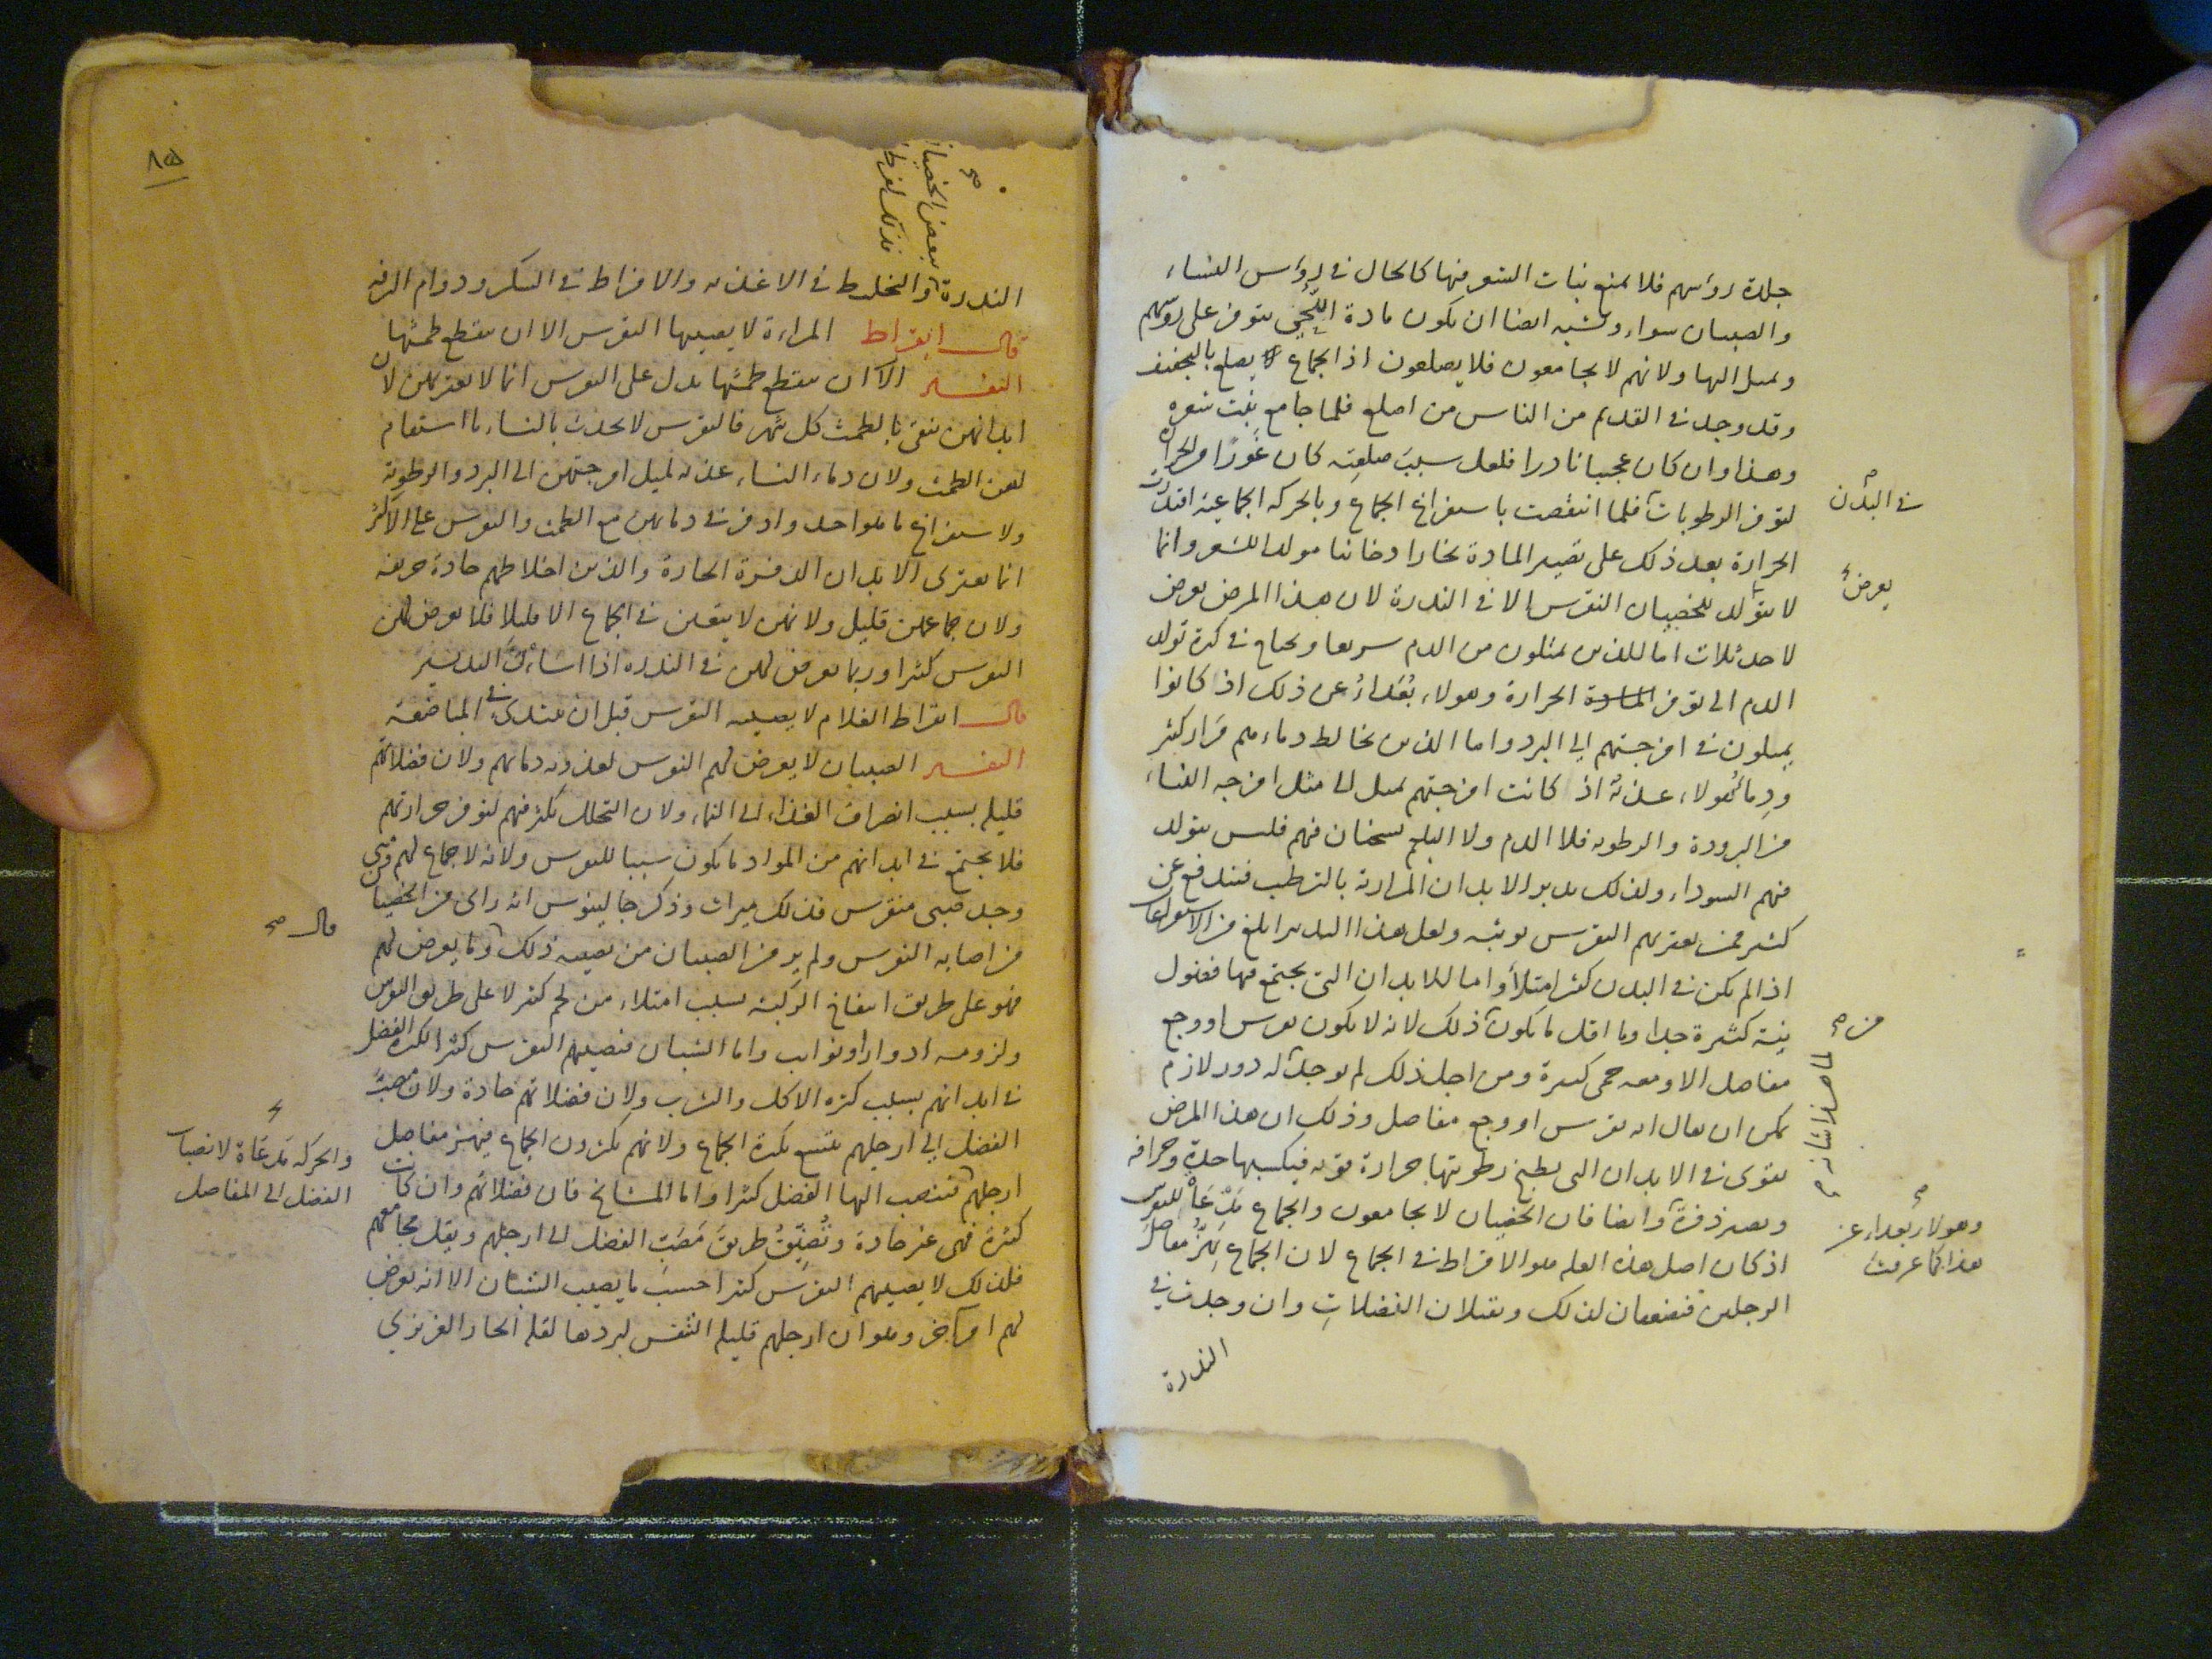 جلدة رؤسهم فلا يمنع نبات الشعر فيها كالحال في رؤاس النساء
والصبيان سواء ويشبه ايضا ان يكون مادة اللحى يتوفر على روسهم
وتميل اليها ولانهم لا يجامعون فلا يصلعون اذ الجماع يصلع بالتجفيف
وقد وجد في القديم من الناس من اصلع فلما جامع نبت شعره
وهذا وان كان عجيبا نادرا فلعل سبب صلعته كان
لتوفر الرطوبات فلما انتقصت باستفراغ الجماع وبالحركة الجماعية اقتدرت
في البدن
الحرارة بعد ذلك على تصيير المادة بخارا دخانيا مولدا للشعر وانما
لا يتولد للخصيان النقرس الا في الندرة لان هذا المرض يعرض
يعرض
لاحد ثلاث اما للذين يمتلون من الدم سريعا ويحتاج في كثرة تولد
الدم الى توفر الحرارة وهولاء بُعَداءُ عن ذلك اذ كانوا
يميلون في امزجتهم الى البرد واما الذين يخالط دماءهم مرار كثير
ودماء هولاء عذبة اذ كانت امزجتهم تميل الى مثل امزجه النساء
من البرودة والرطوبه فلا الدم ولا البلغم يسخنان فيهم فليس يتولد
فيهم السوداء ولذلك يدبر الابدان المرارية بالترطيب فيندفع عن
كثير ممن يعتريهم النقرس نوبته ولعل هذا التدبير ابلغ من الاستفراغات
اذا لم يكن في البدن كثير امتلاء واما للابدان التى يجتمع فيها فضول
نية كثيرة جدا وما اقل ما يكون ذلك لانه لا يكون نقرس او وجع
من صح
مفاصل الا ومعه حمى كبيرة ومن اجل ذلك لم يوجد له دور لازم
يمكن ان يقال انه نقرس او وجع مفاصل وذلك ان هذا المرض
يقوى في الابدان التى يطبخ رطوبتها حرارة قويه فيكسبها حدة وحرافة
ويصير ذفرة وايضا فان الخصيان لا يجامعون والجماع مَدْعَاة للنقرس
وهولاء بعداء عن
هذا كما عرفت
اذ كان اصل هذه العلة هو الافراط في الجماع لان الجماع يهزّ مفاصل
الرجلين فتضعفان لذلك وتقبلان الفضلات وان وجدت في
الندرة
٨٥
بعض الخصيان
فذلك لفرط
الندرة والتخليط في الاغذيه والافراط في السكر ودوام الرفه
قال ابقراط المراءة لا يصيبها النقرس الا ان ينقطع طمثها
التفسير الا ان ينقطع طمثها يدل على النقرس انما لا يعتريهن لان
ابدانهن تنقى بالطمث كل شهر فالنقرس لا يحدث بالنساء ما استقام
لهن الطمث ولان دماء النساء عذبه لميل امزجتهن الى البرد والرطوبة
ولاستفراغ ما هو احد واذفر في دمائهن مع الطمث والنقرس على الاكثر
انما يعترى الابدان الذفرة الحارة والذين اخلاطهم حادة حريفه
ولان جماعهن قليل ولانهن لا يتعبن في الجماع الا قليلا فلا يعرض لهن
النقرس كثيرا وربما يعرض لهن في الندره اذا اساءنَ التدبيرَ
قال ابقراط الغلام لا يصيبه النقرس قبل ان يبتدى في المباضعة
التفسير الصبيان لا يعرض لهم النقرس لعذوبه دمائهم ولان فضلاتهم
قليله بسبب انصراف الغذاء الى النماء ولان التحلل يكثر فيهم لتوفر حرارتهم
فلا يجتمع في ابدانهم من المواد ما يكون سببا للنقرس ولانه لا جماع لهم ومتى
وجد صبي منقرس فذلك ميراث وذكر جالينوس انه راى من الخصيان
قال صح
من اصابه النقرس ولم ير من الصبيان من يصيبه ذلك وما يعرض لهم
فهو على طريق انتفاخ الركبة بسبب امتلاء من لحم كثير لا على طريق النقرس
ولزومه ادوارا ونوايب واما الشبان فيصيبهم النقرس كثيرا لكثرة الفضل
في ابدانهم بسبب كثره الاكل والشرب ولان فضلاتهم حادة ولان مصبّ
الفضل الى ارجلهم يتسع بكثرة الجماع ولانهم يكثرون الجماع فيهز مفاصل
والحركه مَدعَاة لانصباب
الفضل الى المفاصل
ارجلهم فتنصب اليها الفضل كثيرا واما المشايخ فان فضلاتهم وان كانت
كثيرة فهى غير حادة وتُضَيَّق طريق مَصَبّ الفضل الى ارجلهم ويقل مجامعتهم
فلذلك لا يصيبهم النقرس كثيرا حسب ما يصيب الشبان الا انه يعرض
لهم امر آخر وهو ان ارجلهم قليله التنفس لبردها لقله الحار الغريزي